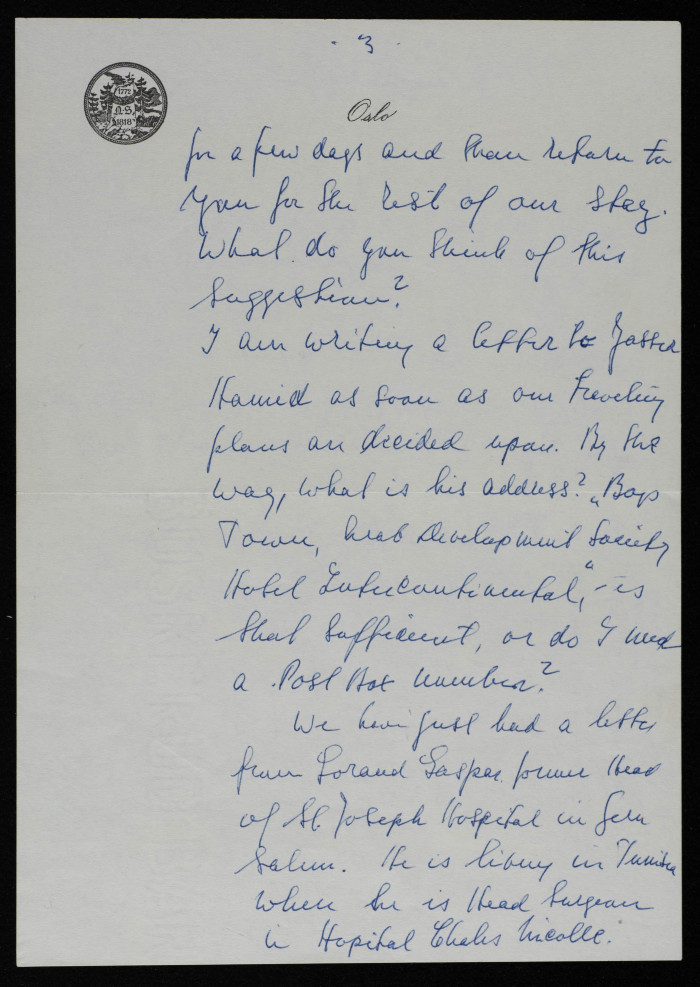 - 3 -
1772
N.S.
1818
Oslo
for a few days and than return to
you for the rest of our stay.
What do you think of this
suggestion?
I am writing a letter to Yasser
Hamid as soon as our traveling
plans are decided upon. By the
way, what is his address? „Boys
Town, Arab Development Society
Hotel Intercontinental," - is
that sufficient, or do I need
a Post Box number?
We have just had a letter
from Lorand Gaspar former Head
of St. Joseph Hospital in Jeru
salem. He is living in Tunisia
where he is Head Surgeon
in Hopital Charles Nicolle.